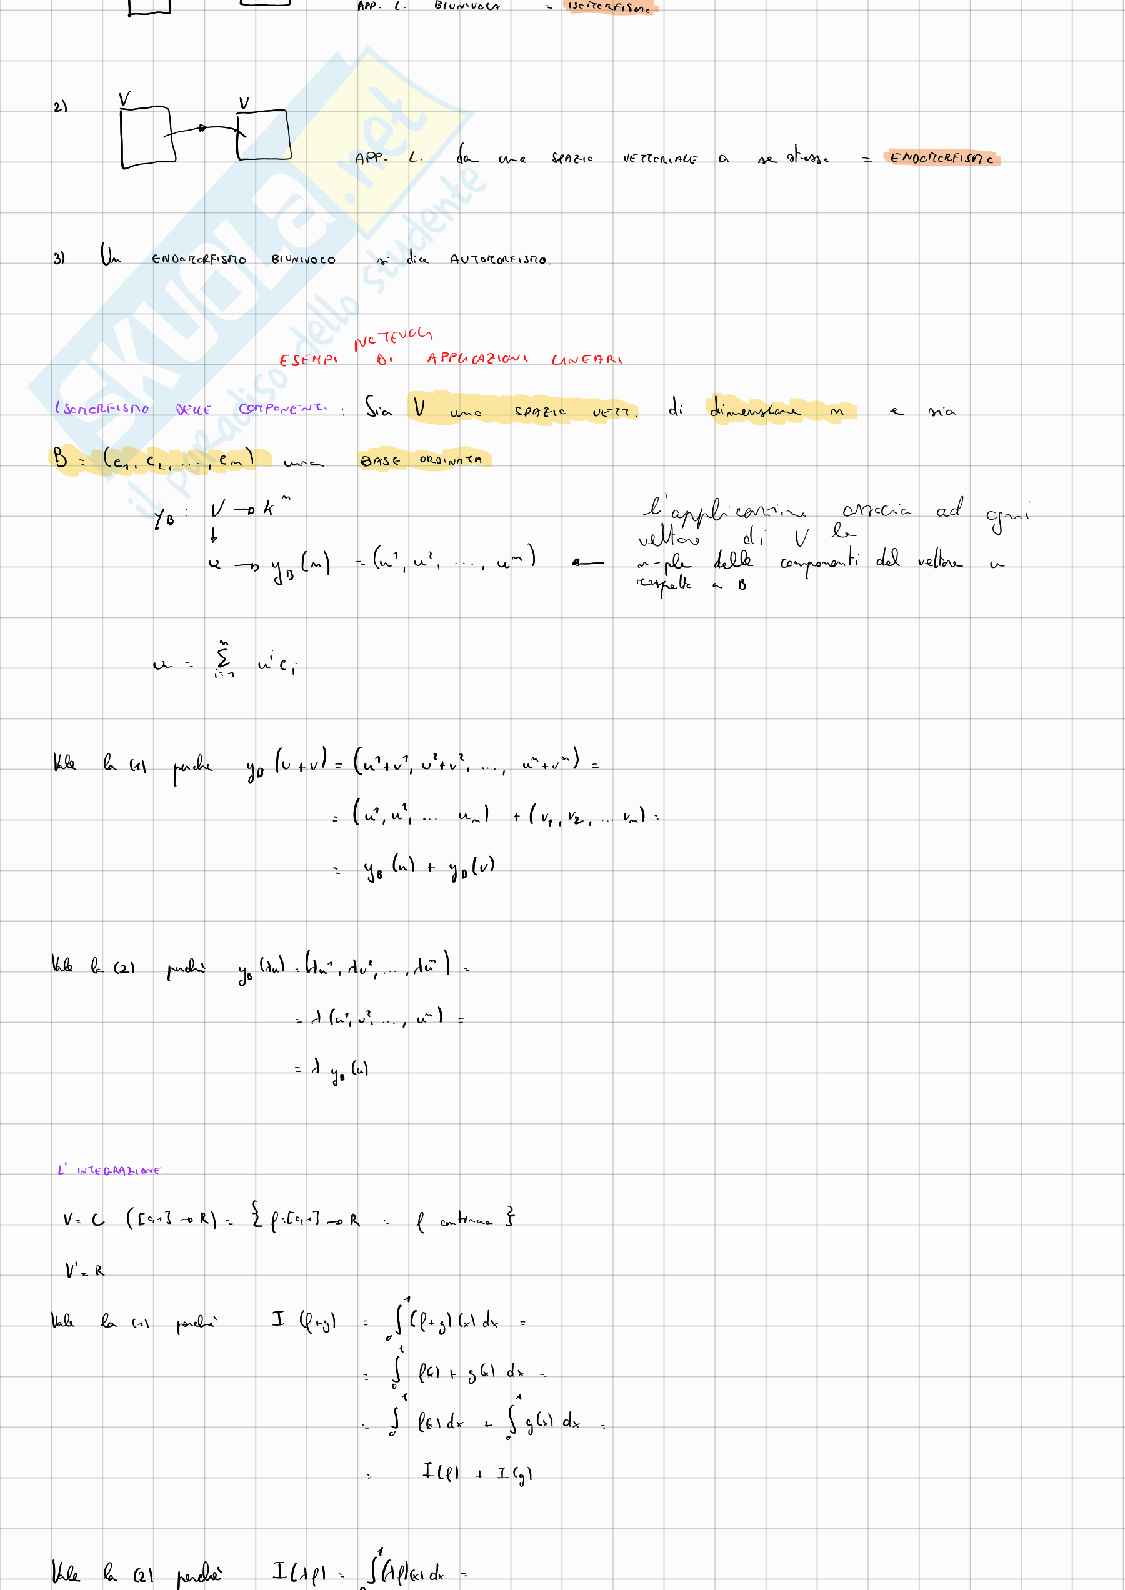 APP. L. BIUNIVOCA = ISOMORFISMO
2)
V V
APP. L. da uno SPAZIO VETTORIALE a se stesso = ENDOMORFISMO
3) Un ENDOMORFISMO BIUNIVOCO si dice AUTOMORFISMO
NOTEVOLI
ESEMPI DI APPLICAZIONI LINEARI
ISOMORFISMO DELLE COMPONENTI: Sia V uno SPAZIO VETT. di dimensione n e sia
B = (e₁, e₂, ..., eₙ) una BASE ORDINATA
φ_B : V → kⁿ
l'applicazione associa ad ogni
vettore di V le
u → φ_B(u) = (u¹, u², ..., uⁿ) ←
n-ple delle componenti del vettore u
rispetto a B
u = Σⁿᵢ₌₁ uⁱeᵢ
Vale la (1) perché φ_B(u+v) = (u¹+v¹, u²+v², ..., uⁿ+vⁿ) =
= (u¹, u², ... uₙ) + (v₁, v₂, ... vₙ) =
= φ_B(u) + φ_B(v)
Vale la (2) perché φ_B(λu) = (λu¹, λu², ..., λuⁿ) =
= λ(u¹, u², ..., uⁿ) =
= λ φ_B(u)
L'INTEGRAZIONE
V = C ([0,1] → R) = { f:[0,1] → R : f continua }
V' = R
Vale la (1) perché I(f+g) = ∫₀¹ (f+g)(x) dx =
= ∫₀¹ f(x) + g(x) dx =
= ∫₀¹ f(x) dx + ∫₀¹ g(x) dx =
= I(f) + I(g)
Vale la (2) perché I(λf) = ∫₀¹ (λf)(x) dx =
SKUOLA.net
il paradiso dello studente